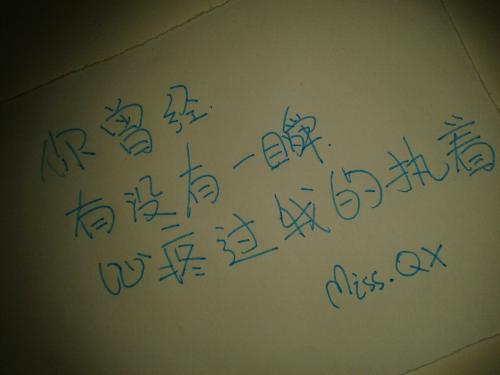 你曾经.
有没有一瞬.
心疼过我的执着
Miss.QX